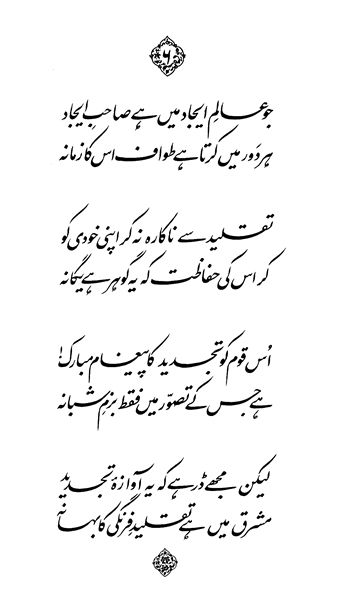 ۶
جو عالمِ ایجاد میں ہے صاحبِ ایجاد
ہر دَور میں کرتا ہے طواف اس کا زمانہ
تقلید سے ناکارہ نہ کر اپنی خودی کو
کر اس کی حفاظت کہ یہ گوہر ہے یگانہ
اُس قوم کو تجدید کا پیغام مبارک!
ہے جس کے تصوّر میں فقط بزمِ شبانہ
لیکن مجھے ڈر ہے کہ یہ آوازۂ تجدید
مشرق میں ہے تقلیدِ فرنگی کا بہانہ